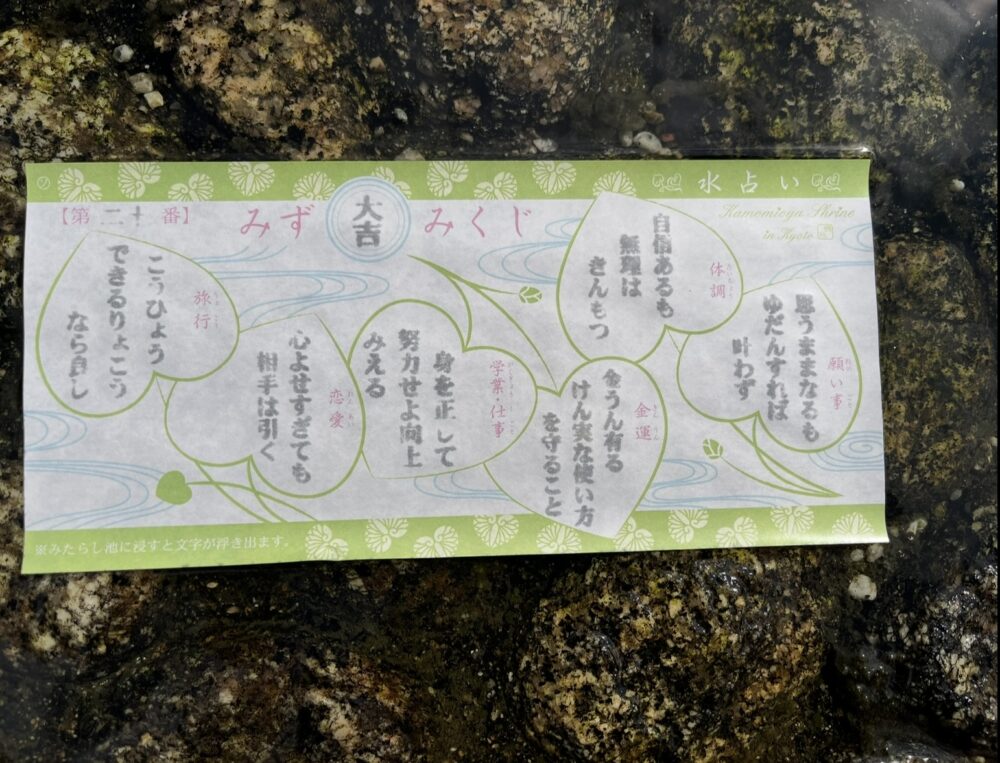 水占い
Kamomioya Shrine
in Kyoto
みず
大吉
みくじ
【第二十番】
願い事
思うままなるも
ゆだんすれば
叶わず
体調
自信あるも
無理は
きんもつ
金運
金うん有る
けん実な使い方
を守ること
学業・仕事
身を正して
努力せよ向上
みえる
恋愛
心よせすぎても
相手は引く
旅行
こうひょう
できるりょこう
なら良し
※みたらし池に浸すと文字が浮き出ます。